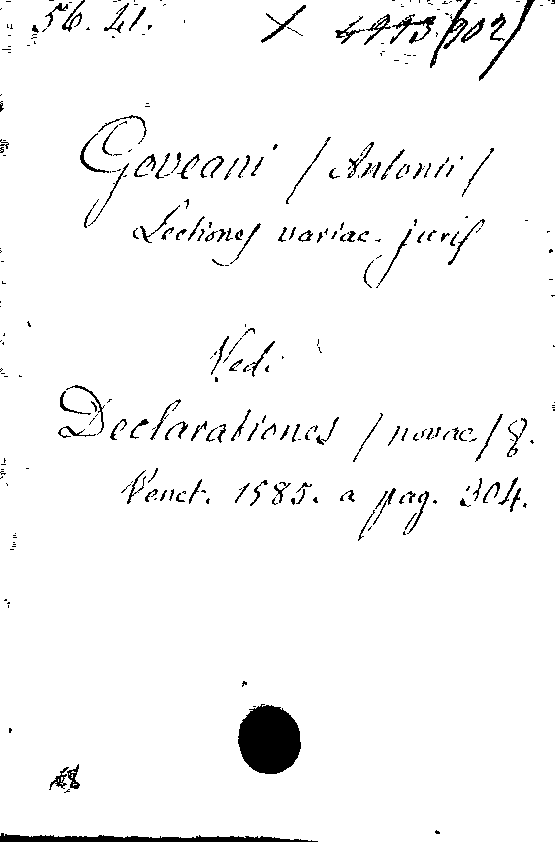 56. 21. X 4993 (902)
Goveani / Antonii /
Lectiones variae juris
Vedi
Declarationes / novae / 8.
Venet. 1585. a pag. 304.